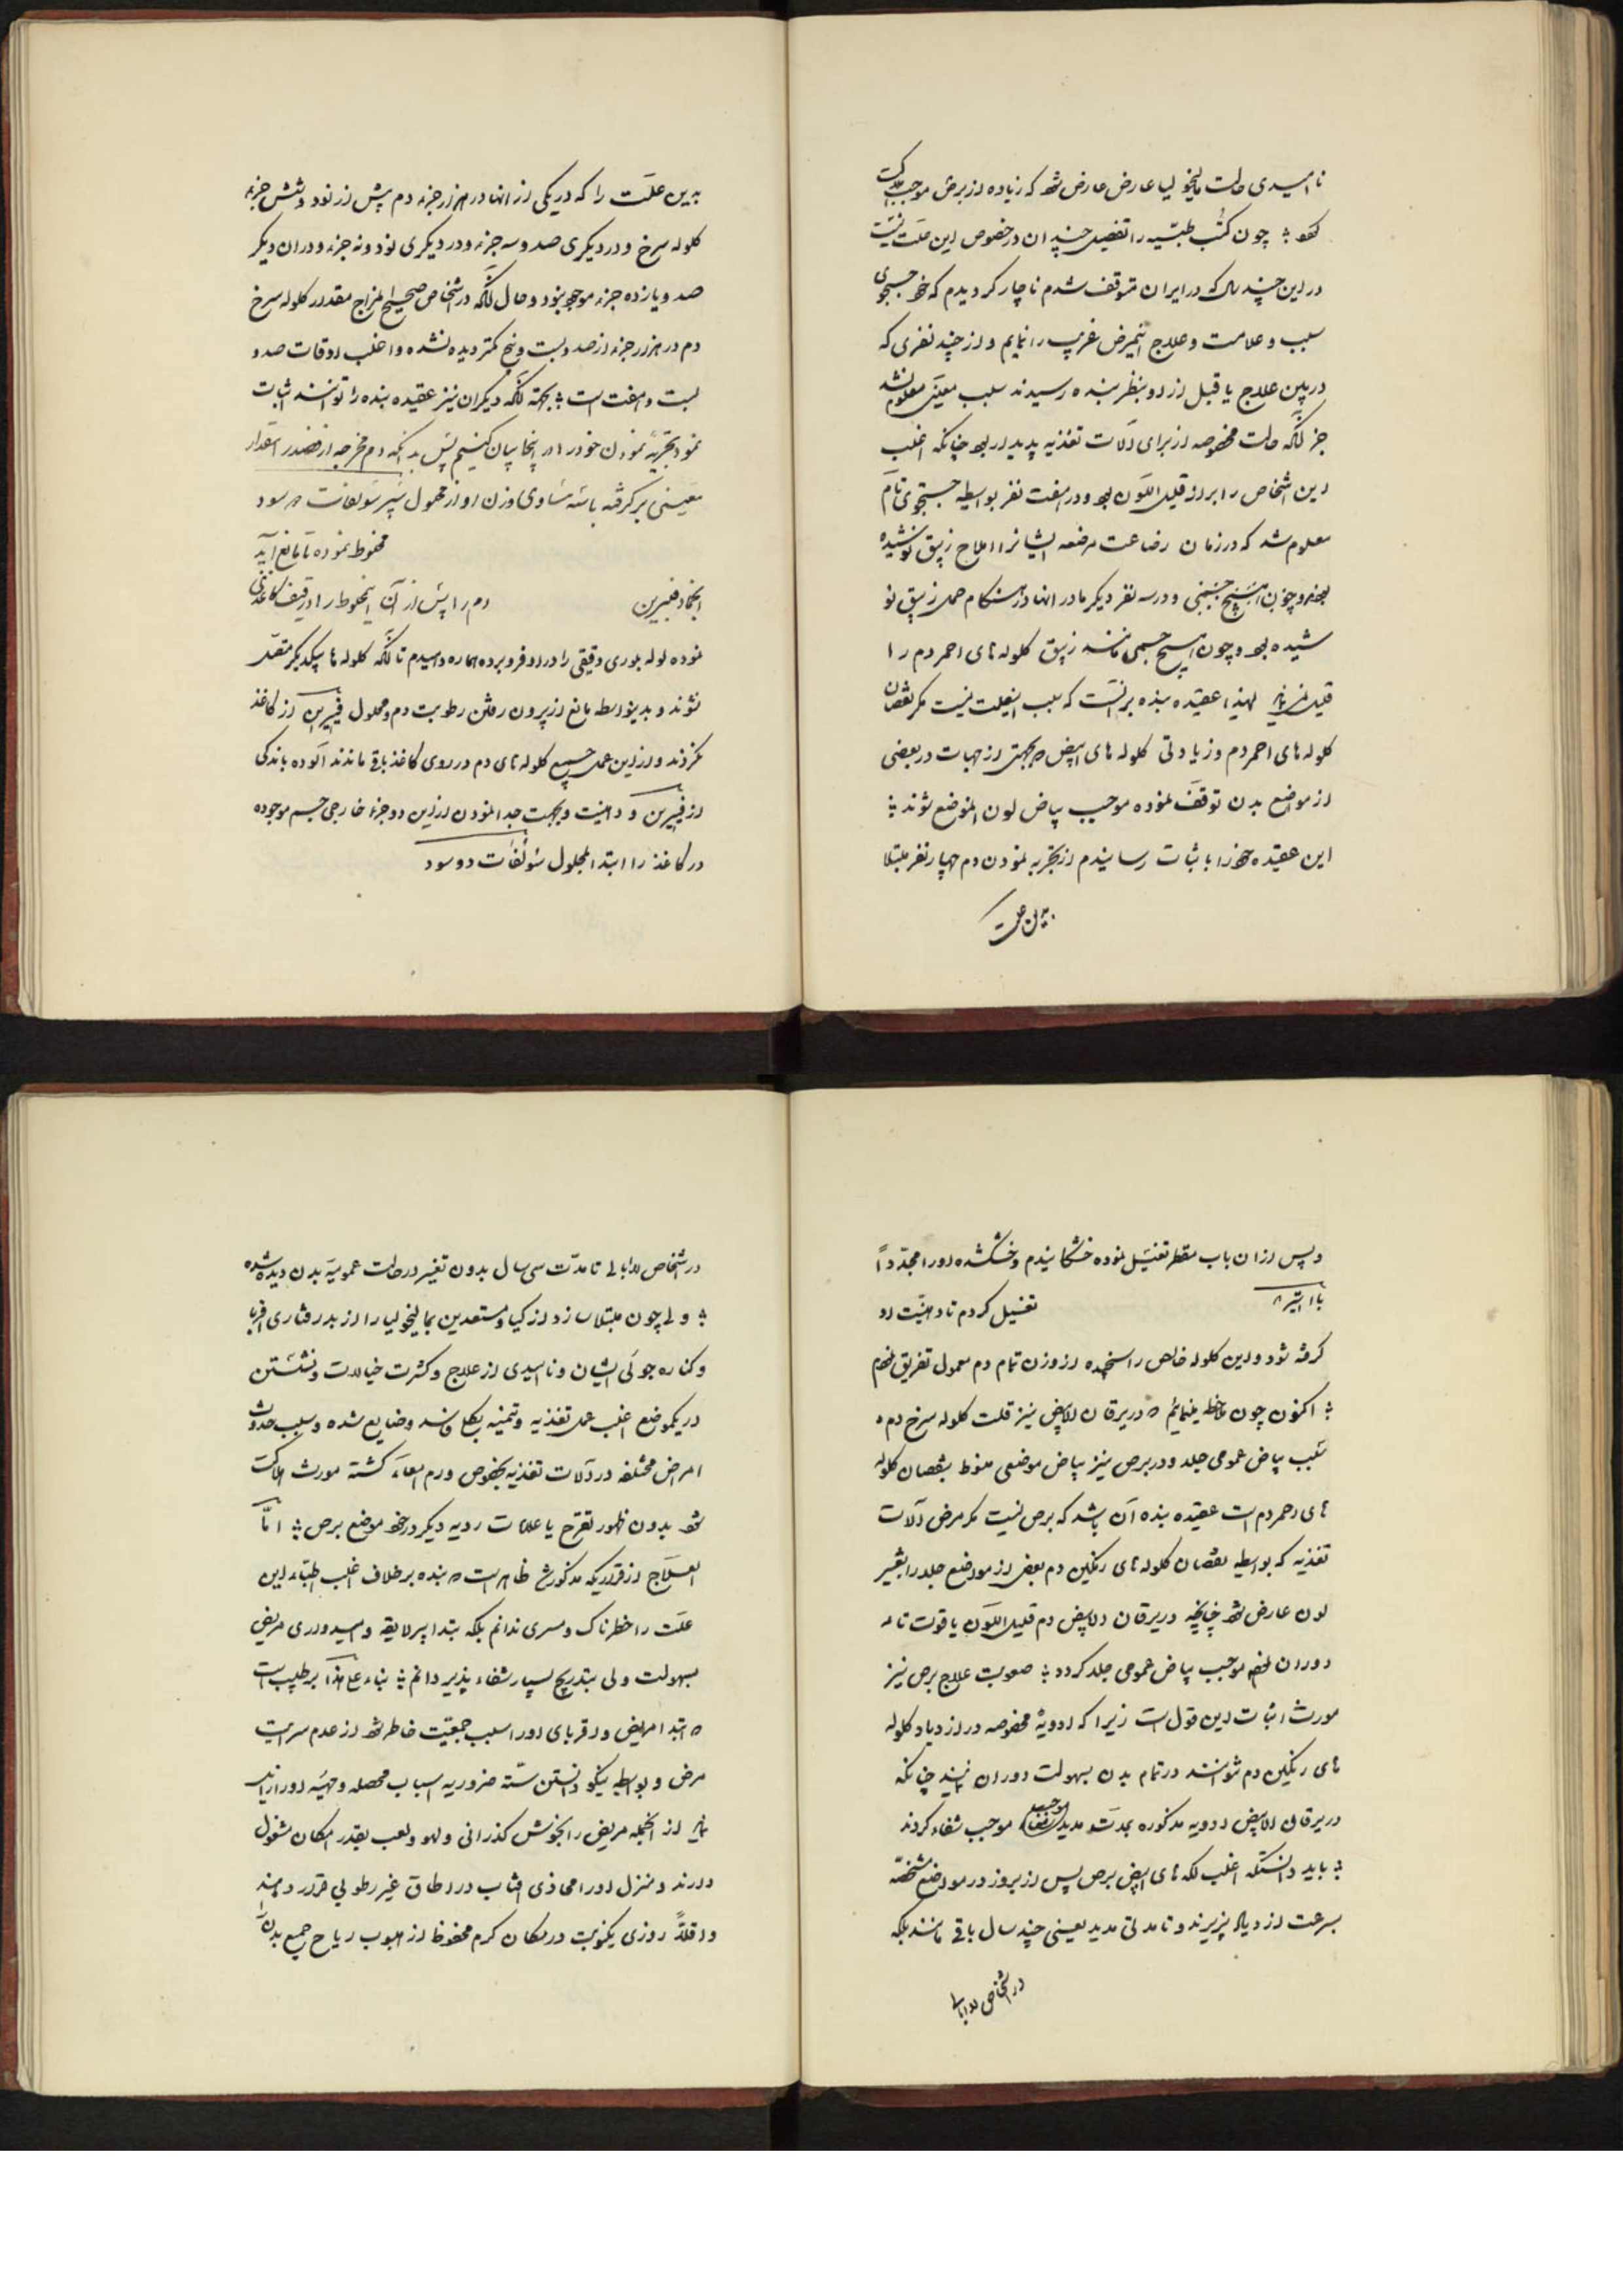 نا امیدی حالت مالیخولیا عارض عارض شود که زیاده از برص موجب هلاکت
شود ؛ چون کتب طبیه را تفصیل چندان در خصوص این علت نیست
در این چند سال که در ایران متوقف شدم ناچار کردیدم که خود جستجوی
سبب و علامت و علاج اینمرض غریب را نمایم و از چند نفری که
در بین علاج یا قبل از او بنظر بنده رسیدند سبب معینی معلوم نشد
جز آنکه حالت مخصوصه از برای آلات تغذیه پدیدار بود چنانکه اغلب
این اشخاص را براز قلیل اللون بود و در هفت نفر بواسطه جستجوی تام
معلوم شد که در زمان رضاعت مرضعه ایشانرا املاح زیبق نوشیده
بودند و چون هیچ جنبی و در سه نفر دیگر مادر انها در هنگام حمل زیبق نو
شیده بود و چون هیچ جسمی مانند زیبق کلوله های احمر دم را
قلیل ننماید لهذا عقیده بنده برانست که سبب اینعلت نیست مکر نقصان
کلوله های احمر دم و زیادتی کلوله های ابیض که بجهتی از جهات در بعضی
از مواضع بدن توقف نموده موجب بیاض لون انموضع شوند ؛
این عقیده خود را باثبات رسانیدم از تجربه نمودن دم چهار نفر مبتلا
بدین علت
بدین علت را که در یکی از انها در هزار جزء دم پیش از نود و شش جزء
کلوله سرخ و در دیکری صد و سه جزء و در دیکری نود و نه جزء و در ان دیکر
صد و یازده جزء موجود نبود و حال آنکه در اشخاص صحیح المزاج مقدار کلوله سرخ
دم در هزار جزء از صد و بیست و پنج کمتر دیده نشده و اغلب اوقات صد و
بیست و هفت است ؛ بجهته آنکه دیکران نیز عقیده بنده را توانند اثبات
نمود تجربه نمودن خود را در اینجا بیان کنیم پس بدانکه دم مخرجه از فصد را مقدار
معینی بر کرفته باشد مساوی وزن او از محلول سیر سولفات د سود
مخلوط نموده تا مانع آید
انجماد فیبرین دم را پس از آن اینمخلوط را در قیف کاغذی
نموده لوله بلوری دقیقی را در او فرو برده هماره دمیدم تا آنکه کلوله ها بیکدیکر متصل
نشوند و بدینواسطه مانع از بیرون رفتن رطوبت دم و محلول فیبرین از کاغذ
نکردند و از این عمل جمیع کلوله های دم در روی کاغذ باقی ماندند آلوده باندکی
از فیبرین و دهنیت و بجهت جدا نمودن از این دو جزء خارجی جسم موجوده
در کاغذ را ابتدا بمحلول سولفات دو سود
و پس از ان باب مقطر تغسیل نموده خشکانیدم و خشکشده او را مجدداً
با اتیر تغسیل کردم تا دهنیت او
کرفته شود و این کلوله خالص را سنجیده از وزن تمام دم معمول تفریق نمودم
؛ اکنون چون ملاحظه مینمائیم که در یرقان الابیض نیز قلت کلوله سرخ دم
سبب بیاض عمومی جلد و در برص نیز بیاض موضعی منوط بنقصان کلوله
های احمر دم است عقیده بنده آن باشد که برص نیست مکر مرض آلات
تغذیه که بواسطه نقصان کلوله های رنکین دم بعض از مواضع جلد را تغییر
لون عارض شود چنانچه در یرقان الابیض دم قلیل اللون یا قوت تامه
دوران نموده موجب بیاض عمومی جلد کردد ؛ صعوبت علاج برص نیز
مورث اثبات این قول است زیرا که ادویهٔ مخصوصه در ازدیاد کلوله
های رنکین دم نتوانند در تمام بدن بسهولت دوران نمایند چنانکه
در یرقان الابیض ادویه مذکوره بمدت مدید موجب شفاء کردند
؛ باید دانستکه اغلب لکه های ابیض برص پس از بروز در مواضع مشخصه
بسرعت ازدیاد پذیرند و تا مدتی مدید یعنی چند سال باقی مانند بلکه
در اشخاص لاابالی
در اشخاص لاابالی تا مدت سی سال بدون تغییر در حالت عمومیه بدن دیده شده
؛ ولی چون مبتلا سازد ازکیا و مستعدین بمالیخولیا را از بد رفتاری اقربا
و کناره جوئی ایشان و ناامیدی از علاج و کثرت خیالات و نشستن
در یکموضع اغلب عمل تغذیه و تنمیه بکل فاسد و ضایع شده و سبب حدوث
امراض مختلفه در آلات تغذیه بخصوص ورم امعاء کشته مورث هلاکت
شود بدون ظهور تقرح یا علامات ردیه دیکر در خود موضع برص ؛ اما
العلاج از قراریکه مذکور شد ظاهر است که بنده برخلاف اغلب اطباء این
علت را خطرناک و مسری ندانم بلکه بتدابیر لایقه و امیدواری مریض
بسهولت ولی بتدریج بسیار شفاء پذیر دانم ؛ بناء علی هذا بر طبیب است
که ابتدا مریض و اقربای او را سبب جمعیت خاطر شود از عدم سرایت
مرض و بواسطه نیکو دانستن سته ضروریه اسباب محصله و مهیئه او را زایل
نماید از انجمله مریض را بخوش کذرانی و لهو و لعب بقدر امکان مشغول
دارند و منزل او را محاذی افتاب در اطاق غیر رطوبی قرار دهند
و اقلاً روزی یکنوبت در مکان کرم محفوظ از هبوب ریاح جمیع بدن